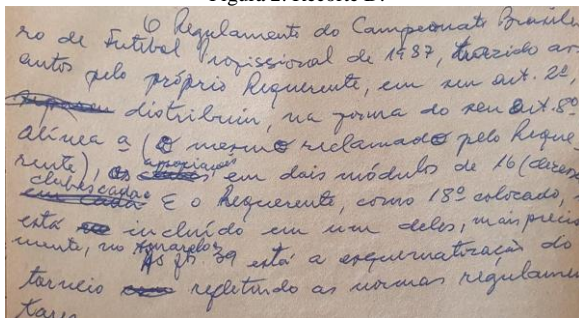 O Regulamento do Campeonato Brasilei
ro de Futebol Profissional de 1987, trazido aos
autos pelo próprio Requerente, em seu art. 2º,
distribuiu, na forma do seu art. 8º
alínea a (o mesmo reclamado pelo Reque-
rente), as associações em dois módulos de 16 (dezesseis
clubes cada E o Requerente, como 18º colocado,
está incluído em um deles, mais precisa
mente, no Amarelo.
Às fls 39 está a esquematização do
torneio refletindo as normas regulamen
tares